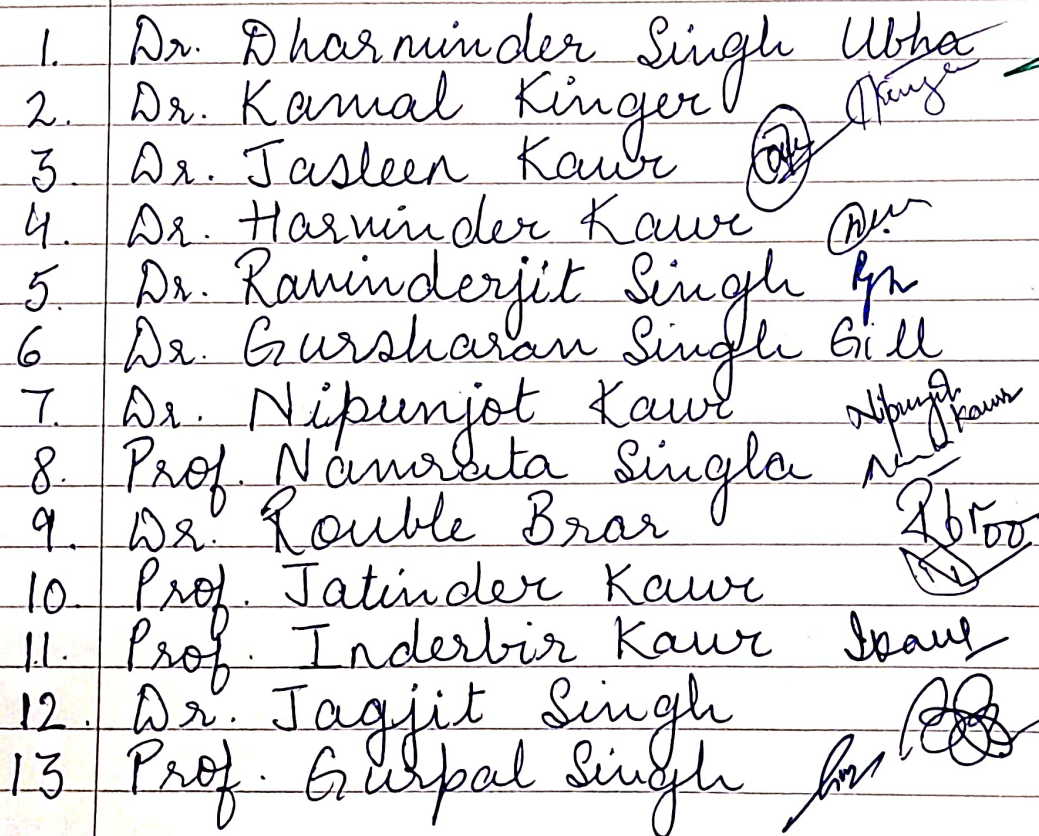 1. Dr. Dharminder Singh Ubha
2. Dr. Kamal Kinger
3. Dr. Jasleen Kaur
4. Dr. Harvinder Kaur
5. Dr. Raninderjit Singh
6 Dr. Gursharan Singh Gill
7. Dr. Nipunjot Kaur Nipunjot Kaur
8. Prof. Namrata Singla
9. Dr. Rouble Brar
10. Prof. Jatinder Kaur
11. Prof. Inderbir Kaur Ikaur
12. Dr. Jagjit Singh
13 Prof. Gurpal Singh